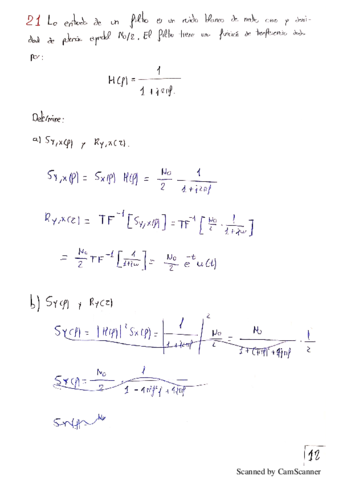 2.1 La entrada de un filtro es un ruido blanco de media cero y densi-
dad de potencia espectral No/2. El filtro tiene una función de transferencia dada
por:
H(f) = 1 / (1 + j2πf)
Determine:
a) Sy,x(f) y Ry,x(τ).
Sy,x(f) = Sx(f) H(f) = No/2 · 1/(1+j2πf)
Ry,x(τ) = TF⁻¹[Sy,x(f)] = TF⁻¹[No/2 · 1/(1+jw)]
= No/2 TF⁻¹[1/(1+jw)] = No/2 e^-t u(t)
b) Sy(f) y Ry(τ)
Sy(f) = |H(f)|² Sx(f) = |1/(1+j2πf)|² No/2 =
Sy(f) = No/2 ·
12
Scanned by CamScanner